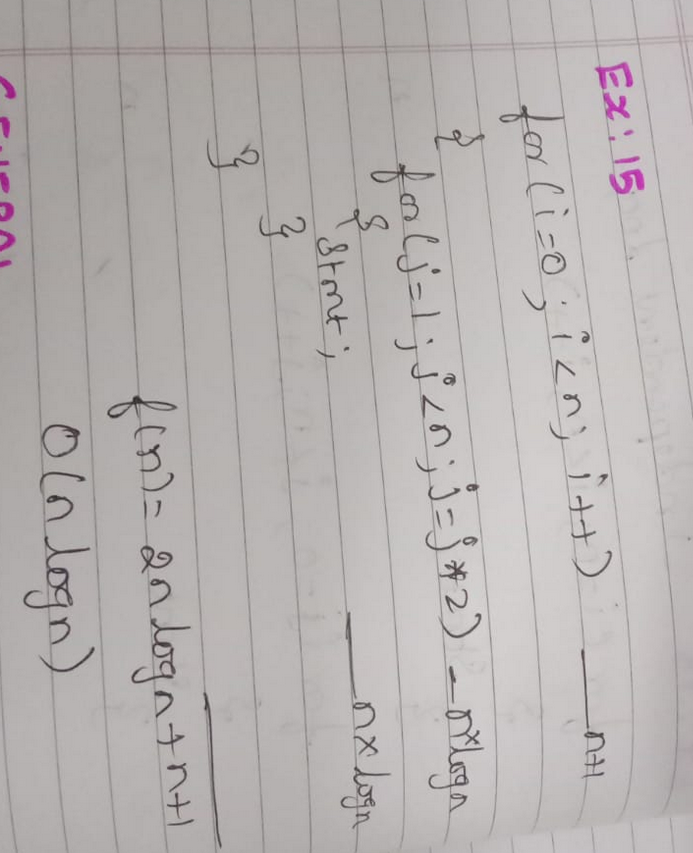 Ex: 15
for (i=0; i<n; i++) — n+1
{
for (j=1; j<n; j=j*2) — n×logn
{
stmt; — n×logn
}
}
f(n) = 2n logn + n+1
O(n logn)